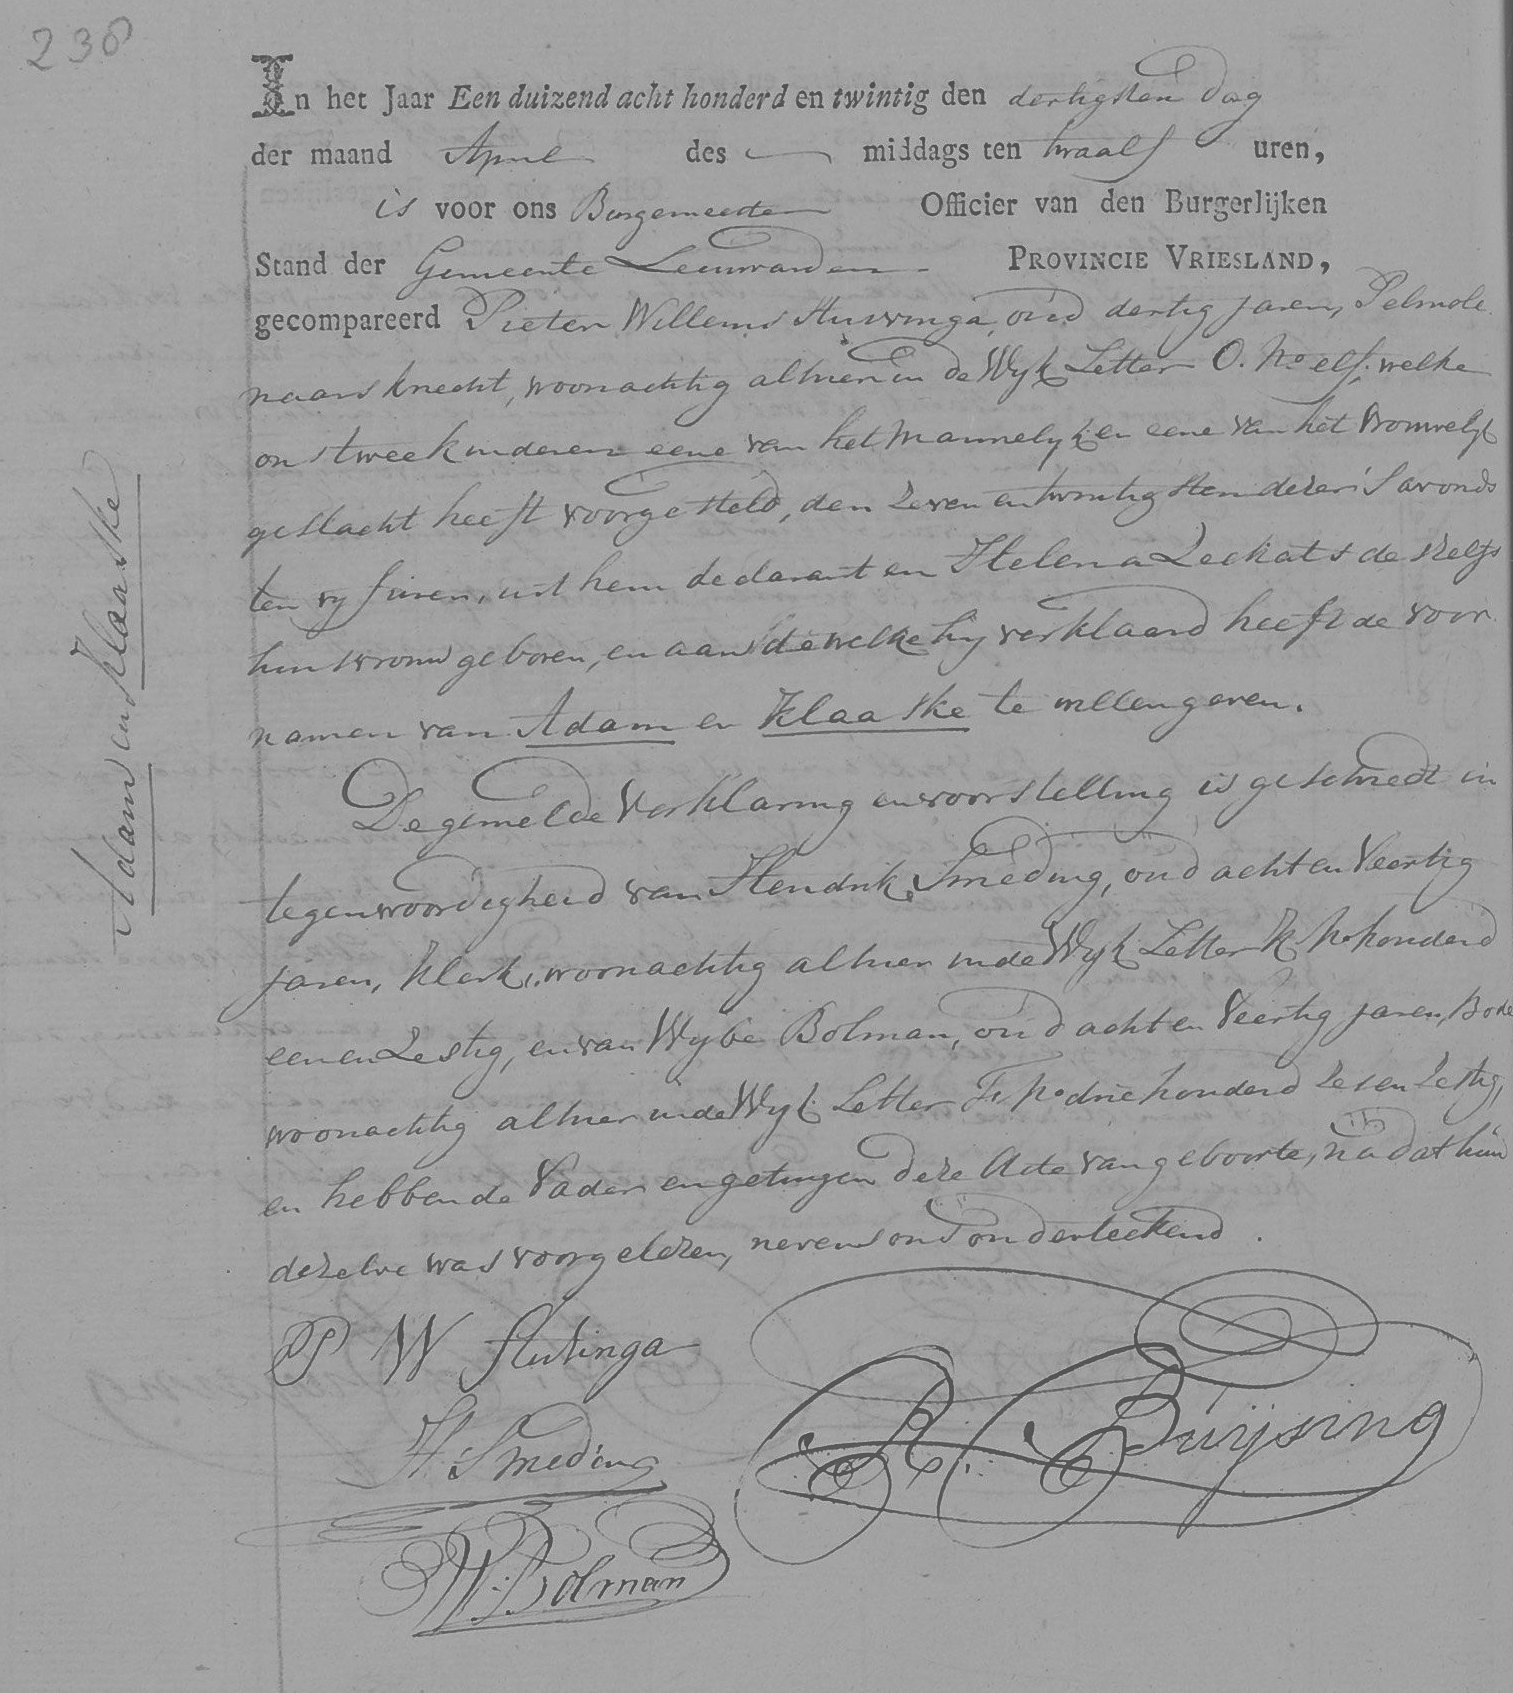 236
In het Jaar Een duizend acht honderd en twintig den dertigsten Dag
der maand April des — middags ten twaalf uren,
is voor ons Burgemeester Officier van den Burgerlijken
Stand der Gemeente Leeuwarden PROVINCIE VRIESLAND,
gecompareerd Pieter Willems oud dertig jaren, Pelmole
naars knecht, woonachtig alhier in de Wyk Letter O. No elf, welke
ons twee kinderen eene van het Mannelyk en eene van het Vrouwelyk
geslacht heeft voorgesteld, den zeven en twintigsten dezer 's avonds
ten vyf uren, uit hem declarant en Helena de zelfs
huisvrouw geboren, en aan dewelke hy verklaard heeft de voor
namen van Adam en Klaaske te willen geven.
De gemelde Verklaring en voorstelling is geschiedt in
tegenwoordigheid van Hendrik Smeding, oud acht en Veertig
jaren, Klerk, woonachtig alhier in de Wyk Letter K No honderd
een en Zestig, en van Wybe Bolman, oud acht en Veertig jaren, Bode
woonachtig alhier in de Wyk Letter F, No drie honderd zes en zestig,
en hebben de Vader en getuigen deze Acte van geboorte, na dat hun
dezelve was voorgelezen, nevens ons onderteekend.
Adam en Klaaske
P W
H. Smeding
R. Buijsing
W. Bolman